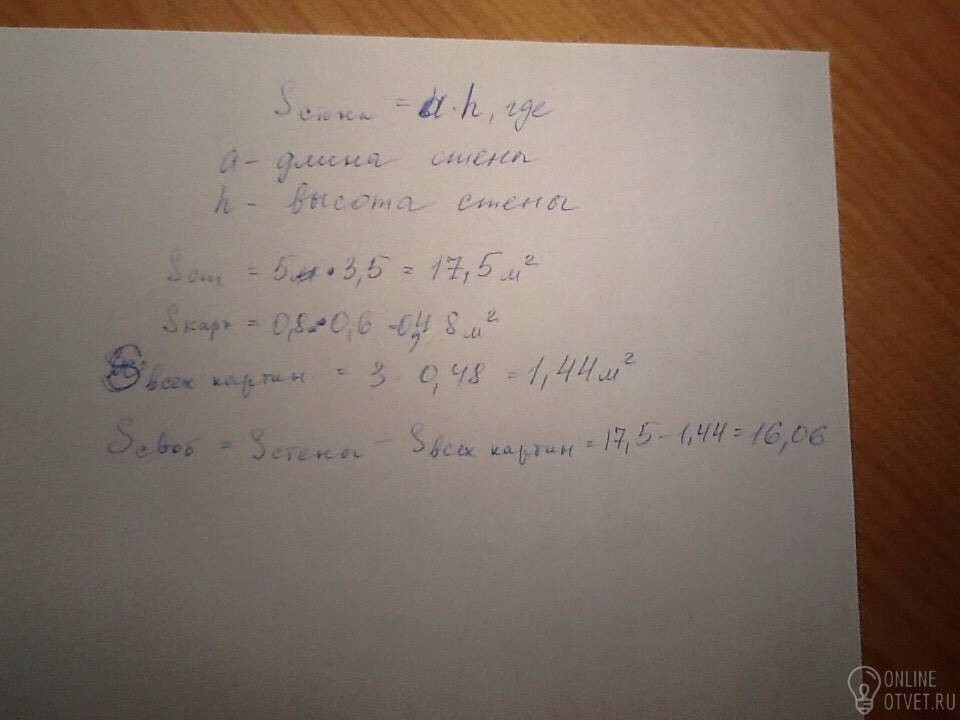 S стена = a · h, где
a - длина стены
h - высота стены
S ст = 5м · 3,5 = 17,5 м²
S карт = 0,8 · 0,6 = 0,48 м²
S всех картин = 3 · 0,48 = 1,44 м²
S своб = S стены - S всех картин = 17,5 - 1,44 = 16,06
ONLINE
OTVET.RU